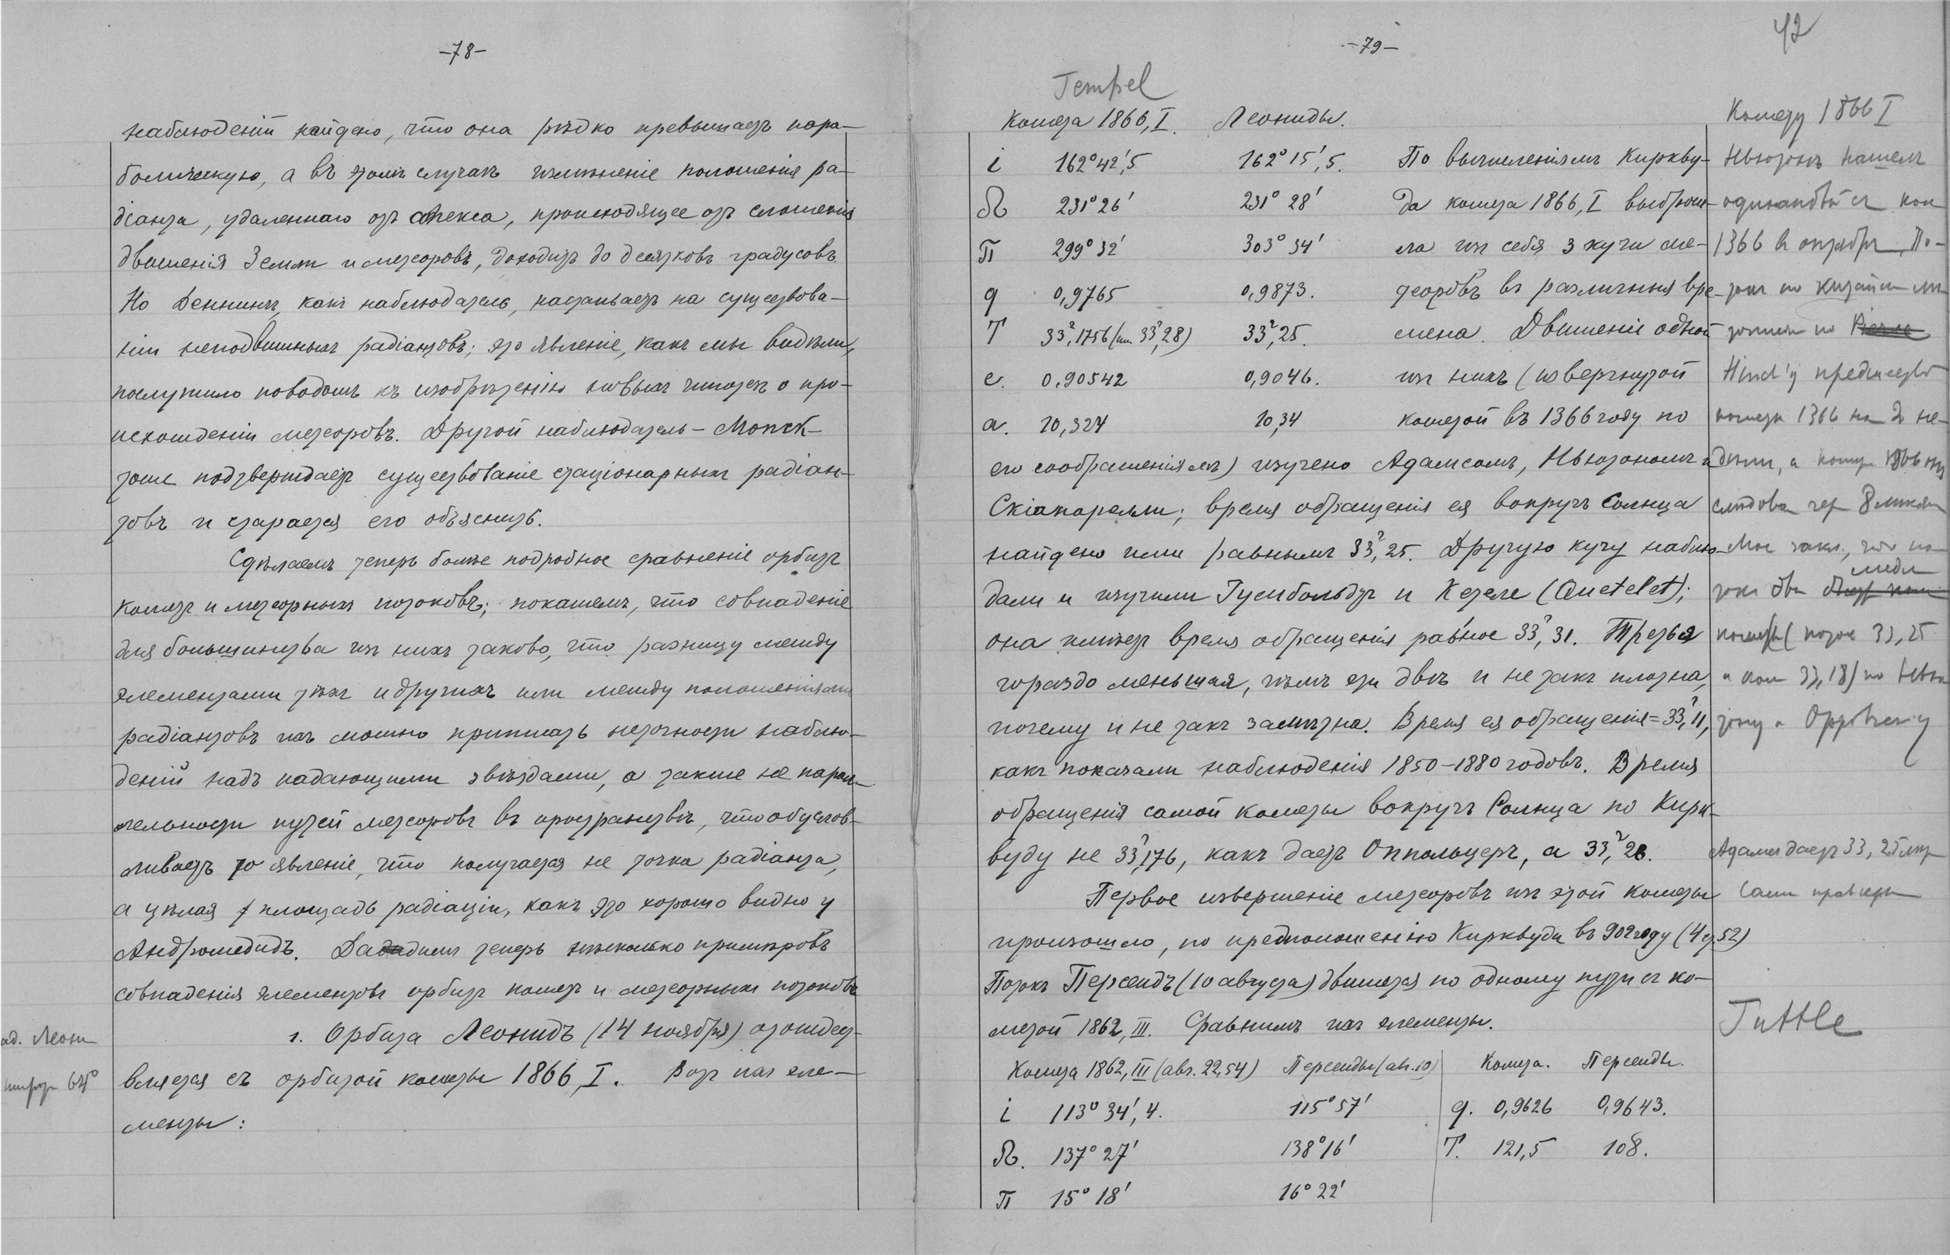 -78-
наблюденій найдено, что она рѣдко превышаетъ пара-
болическую, а въ этомъ случаѣ измѣненіе положенія ра-
діанта, удаленнаго отъ апекса, происходящее отъ сложенія
движенія Земли и метеоровъ, доходитъ до десятковъ градусовъ.
Но Деннингъ, какъ наблюдатель, настаиваетъ на существова-
ніи неподвижныхъ радіантовъ; это явленіе, какъ мы видѣли,
послужило поводомъ къ изобрѣтенію новыхъ гипотезъ о про-
исхожденіи метеоровъ. Другой наблюдатель – Monck
тоже подтверждаетъ существованіе стаціонарныхъ радіан-
товъ и старается его объяснить.
Сдѣлаемъ теперь болѣе подробное сравненіе орбитъ
кометъ и метеорныхъ потоковъ; покажемъ, что совпаденіе
для большинства изъ нихъ таково, что разницу между
элементами тѣхъ и другихъ или между положеніями
радіантовъ ихъ можно приписать неточности наблю-
деній надъ падающими звѣздами, а также не парал-
лельности путей метеоровъ въ пространствѣ, что обуслов-
ливаетъ то явленіе, что получается не точка радіанта,
а цѣлая площадь радіаціи, какъ это хорошо видно у
Андромедидъ. Дадимъ теперь нѣсколько примѣровъ
совпаденія элементовъ орбитъ кометъ и метеорныхъ потоковъ
1. Орбита Леонидъ (14 ноября) отождест-
вляется съ орбитой кометы 1866, I. Вотъ ихъ эле-
менты:
ад. Леони
-79-
42
Tempel
Комета 1866, I. Леониды.
i 162°42',5 162°15',5.
☊ 231°26' 231°28'
П 299°32' 303°34'
q 0,9765 0,9873.
T 33г,1756 (или 33г,28) 33г,25.
e. 0.90542 0,9046.
a. 10,324 10,34
По вычисленіямъ Киркву-
да комета 1866, I выброси-
ла изъ себя 3 кучи ме-
теоровъ въ различныя вре-
мена. Движеніе одной
изъ нихъ (извергнутой
кометой въ 1366 году по
его соображеніямъ) изучено Адамсомъ, Ньютономъ и
Скіапарелли; время обращенія ея вокругъ Солнца
найдено ими равнымъ 33г,25. Другую кучу наблю-
дали и изучили Гумбольдтъ и Кетле (Quetelet);
она имѣетъ время обращенія равное 33г,31. Третья
гораздо меньшая, чѣмъ эти двѣ и не такъ плотна,
почему и не такъ замѣтна. Время ея обращенія = 33г,11,
какъ показали наблюденія 1850–1880 годовъ. Время
обращенія самой кометы вокругъ Солнца по Кирк-
вуду не 33г,176, какъ даетъ Оппольцеръ, а 33г,28.
Первое изверженіе метеоровъ изъ этой кометы
произошло, по предположенію Кирквуда въ 902 году (4, 52)
Потокъ Персеидъ (10 августа) движется по одному пути съ ко-
метой 1862, III. Сравнимъ ихъ элементы.
Комета 1862, III (авг. 22,54) Персеиды (авг. 10)
i 113° 34',4. 115°57'
☊. 137° 27' 138°16'
П 15° 18' 16° 22'
Комета. Персеиды.
q. 0,9626 0,9643.
T. 121,5 108.
Комету 1866 I
Ньютонъ нашелъ
1366 в октябрѣ. По-
Hind'у предшеств
кометы 1366 на 2 не-
комет (поток 33,25
и ком 33,18) по Нью
тону и Oppolzer'у
Адамсъ даетъ 33,25
Tuttle